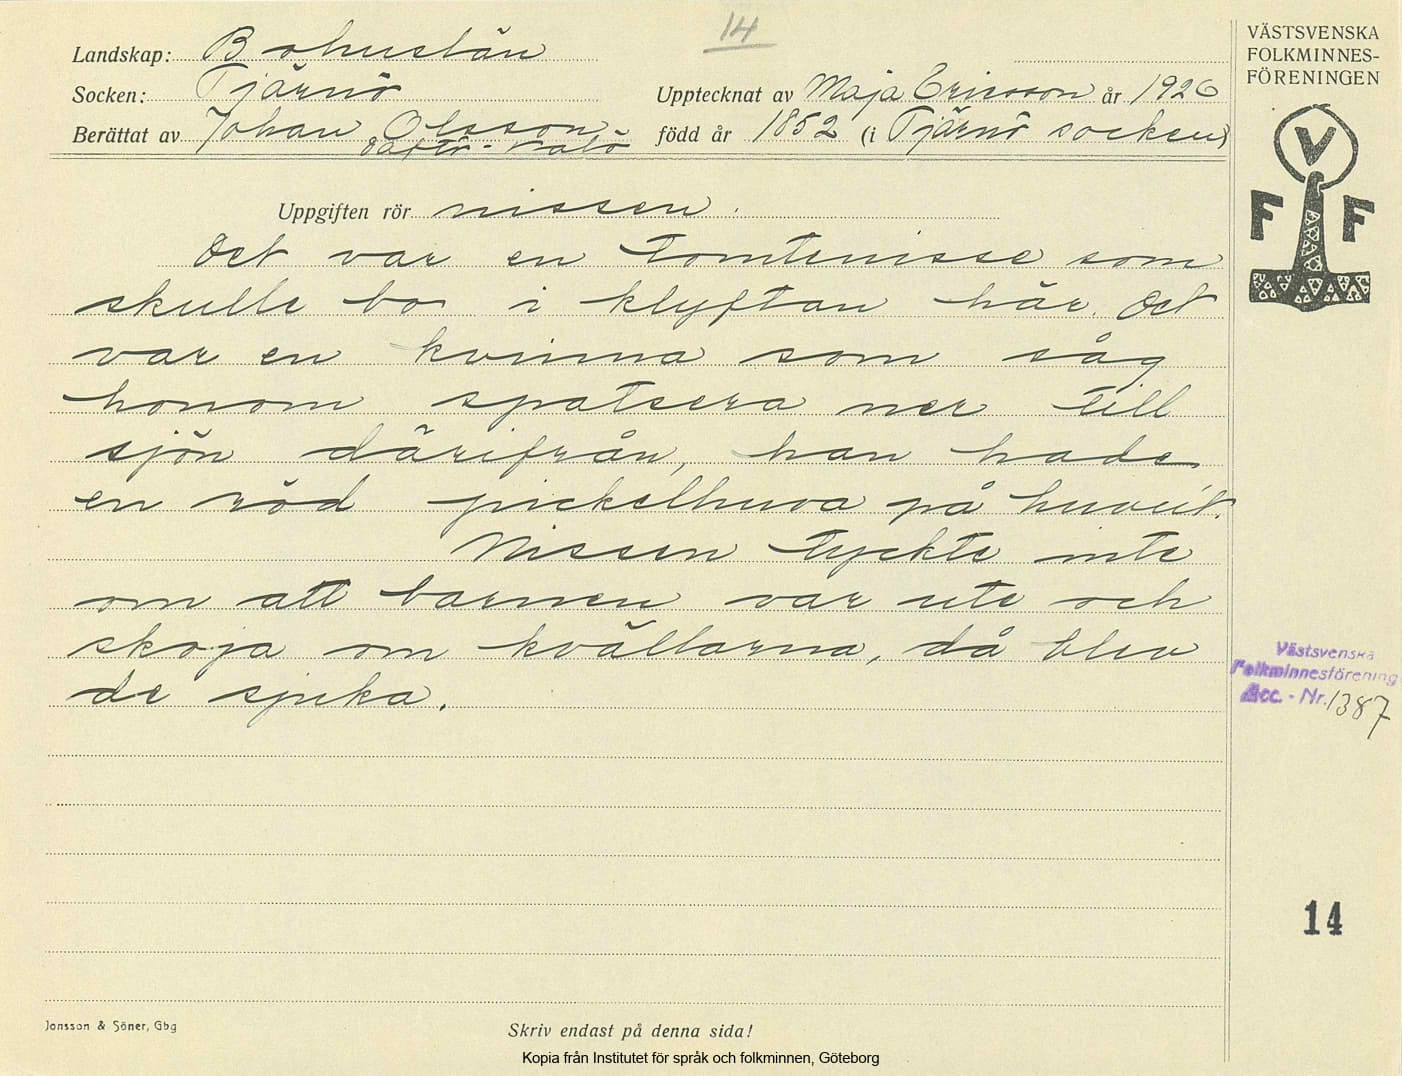 14
Landskap: Bohuslän
Socken: Tjärnö
Upptecknat av Maja Ericsson år 1926
Berättat av Johan Olsson
Saltö - Valö
född år 1852 (i Tjärnö socken)
VÄSTSVENSKA
FOLKMINNES-
FÖRENINGEN
V
F F
Uppgiften rör nissen.
Det var en tomtenisse som
skulle bo i klyftan här. Det
var en kvinna som såg
honom spatsera ner till
sjön därifrån, han hade
en röd pickelhuva på huvut.
Nissen tyckte inte
om att barnen var ute och
skoja om kvällarna, då blev
de sjuka.
Västsvenska
Folkminnesförening
Acc. - Nr. 1387
14
Jonsson & Söner, Gbg
Skriv endast på denna sida!
Kopia från Institutet för språk och folkminnen, Göteborg